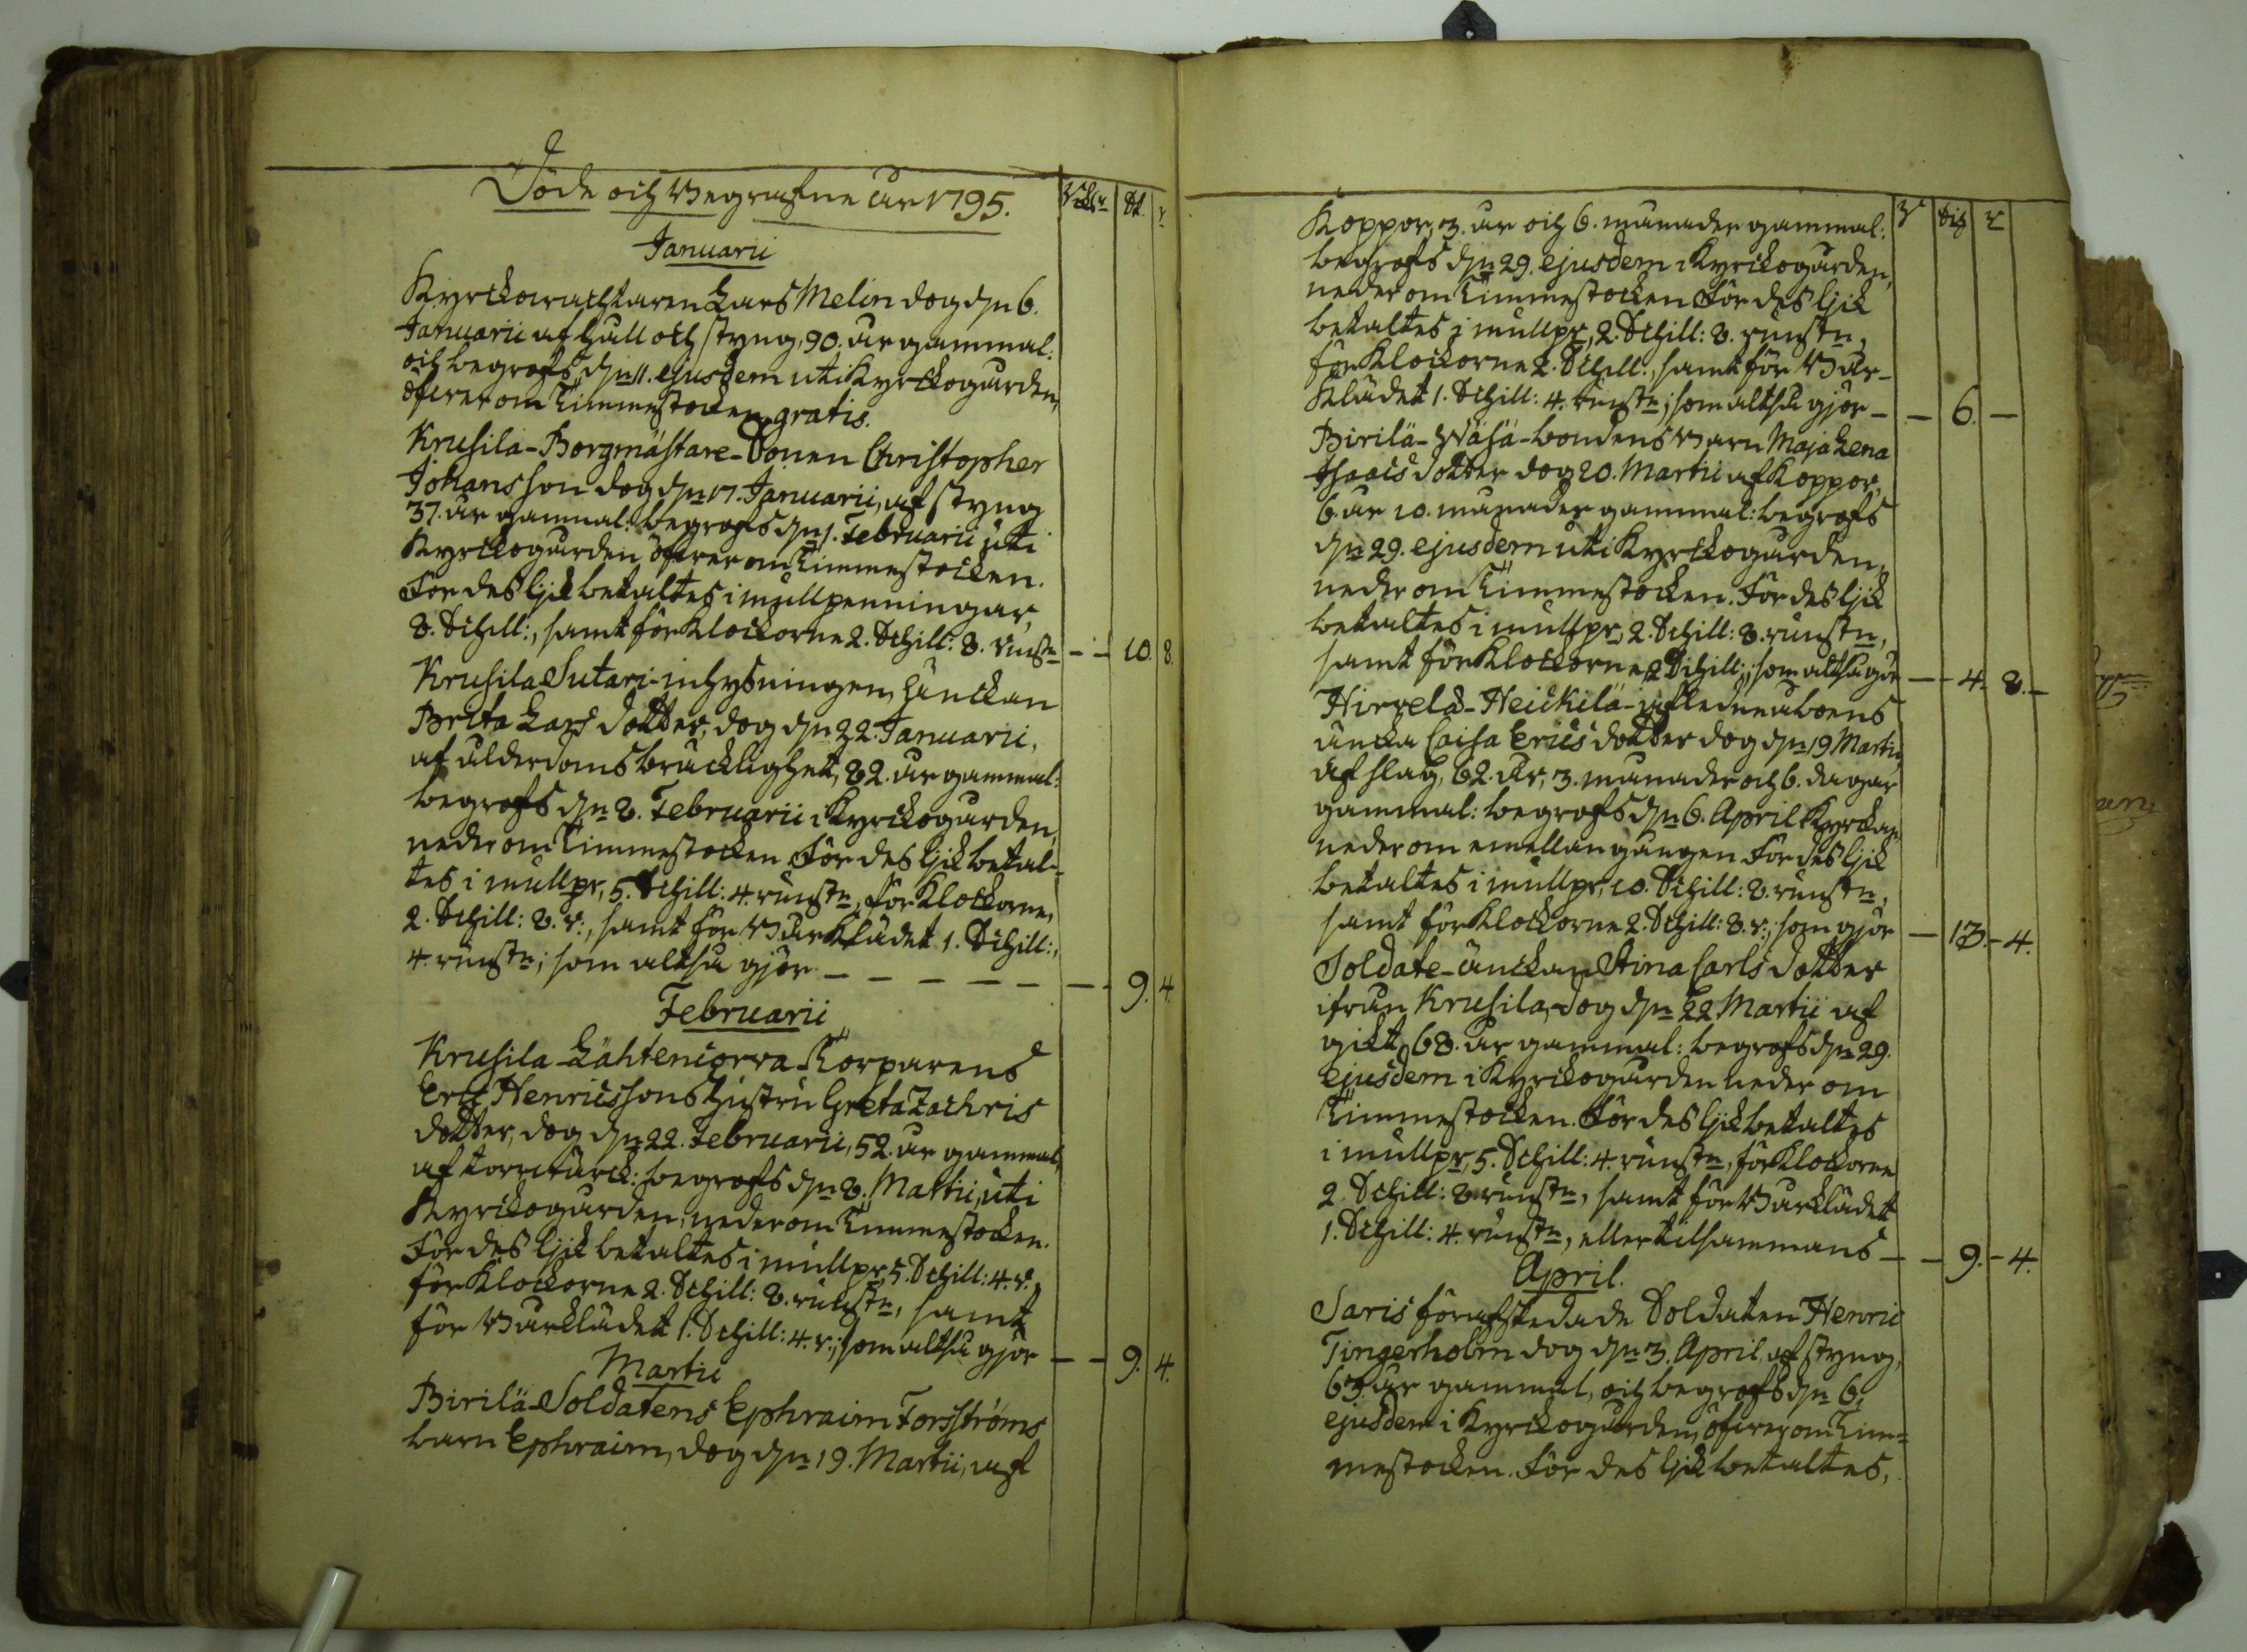 Döde och Begrafne år 1795.
Januarii
Kyrckowachtaren Lars Melin dog d\n 6.
Januarii af håll och styng, 90. år gammal:
och begrofs d\n 11. ejusdem uti Kyrckogården,
öfwer om Timmestocken, gratis.
Krusila-Borgmästare-Sonen Christopher
Johansson dog d\n 17. Januarii, af styng
37. år gammal: begrofs d\n 1. Februarii uti
Kyrckogården öfwer om Timmestocken.
För des lijk betaltes i mullpenningar,
8. Schill:, samt för Klockorne 2. Schill: 8. runst\n — — 10. 8.
Krusila Sutari-inhysningen, Enckan
Brita Lars dotter, dog d\n 22. Januarii,
af ålderdoms bräcklighet, 82. år gammal:
begrofs d\n 8. Februarii i Kyrckogården,
neder om Timmestocken. För des lijk betal-
tes i mullpr, 5. Schill: 4. runst\n, för Klockorne,
2. Schill: 8. r:, samt för Bårklädet 1. Schill:,
4. runst\n; som altså gjör — — — — — — — 9. 4.
Februarii
Krusila-Lähtencorva-Torparens
Eric Henricssons hustru Greta Zachris
dotter, dog d\n 22. Februarii, 52. år gammal,
af torrwärck: begrofs d\n 8. Martii, uti
Kyrckogården, neder om Timmestocken.
För des lijk betaltes i mullpr 5. Schill: 4. r.,
för Klockorne 2. Schill: 8. runst\n, samt
för Bårklädet 1. Schill: 4. r.; som altså gjör — — 9. 4.
Martii
Birilä-Soldatens Ephraim Forsströms
barn Ephraim, dog d\n 19. Martii, af
Koppor, 3. år och 6. månader gammal:
begrofs d\n 29. ejusdem i Kyrckogården,
neder om Timmestocken. För des lijk
betaltes i mullpr, 2. Schill: 8. runst\n,
för Klockorne 2. Schill:, samt för Bår-
klädet 1. Schill: 4. runst\n; som altså gjör — — 6. —
Birilä-Wäsä-bondens barn Maja Lena
Isaacs dotter dog 20. Martii af Koppor,
6. år 10. månader gammal: begrofs
d\n 29. ejusdem uti Kyrckogården,
neder om Timmestocken. För des lijk
betaltes i mullpr, 2. Schill: 8. runst\n,
samt för Klockorne 2 Schill:; som altså gör — — 4. 8. —
Hirvelä-Heickilä-afledne aboens
äncka Caisa Erics dotter dog d\n 19 Martii,
af slag, 62. år, 3. månader och 6. dagar
gammal: begrofs d\n 6. April i Kyrckan
neder om emellangången. För des lijk
betaltes i mullpr, 10. Schill: 8. runst\n,
samt för Klockorne 2. Schill: 8. r.; som gjör — 13. — 4.
Soldate-änckan Stina Carls dotter
ifrån Krusila, dog d\n 22 Martii af
gikt, 68. år gammal: begrofs d\n 29.
ejusdem i Kyrckogården neder om
Timmestocken. För des lijk betaltes
i mullpr, 5. Schill: 4. runst\n, för Klockorne
2. Schill: 8. runst\n, samt för Bårklädet
1. Schill: 4. runst\n, eller tilsammans — — 9. — 4.
April.
Saris förafskedade Soldaten Henric
Tingerholm dog d\n 3. April, af styng,
63. år gammal, och begrofs d\n 6.
ejusdem i Kyrckogården, öfwer om Tim-
mestocken. För des lijk betaltes,